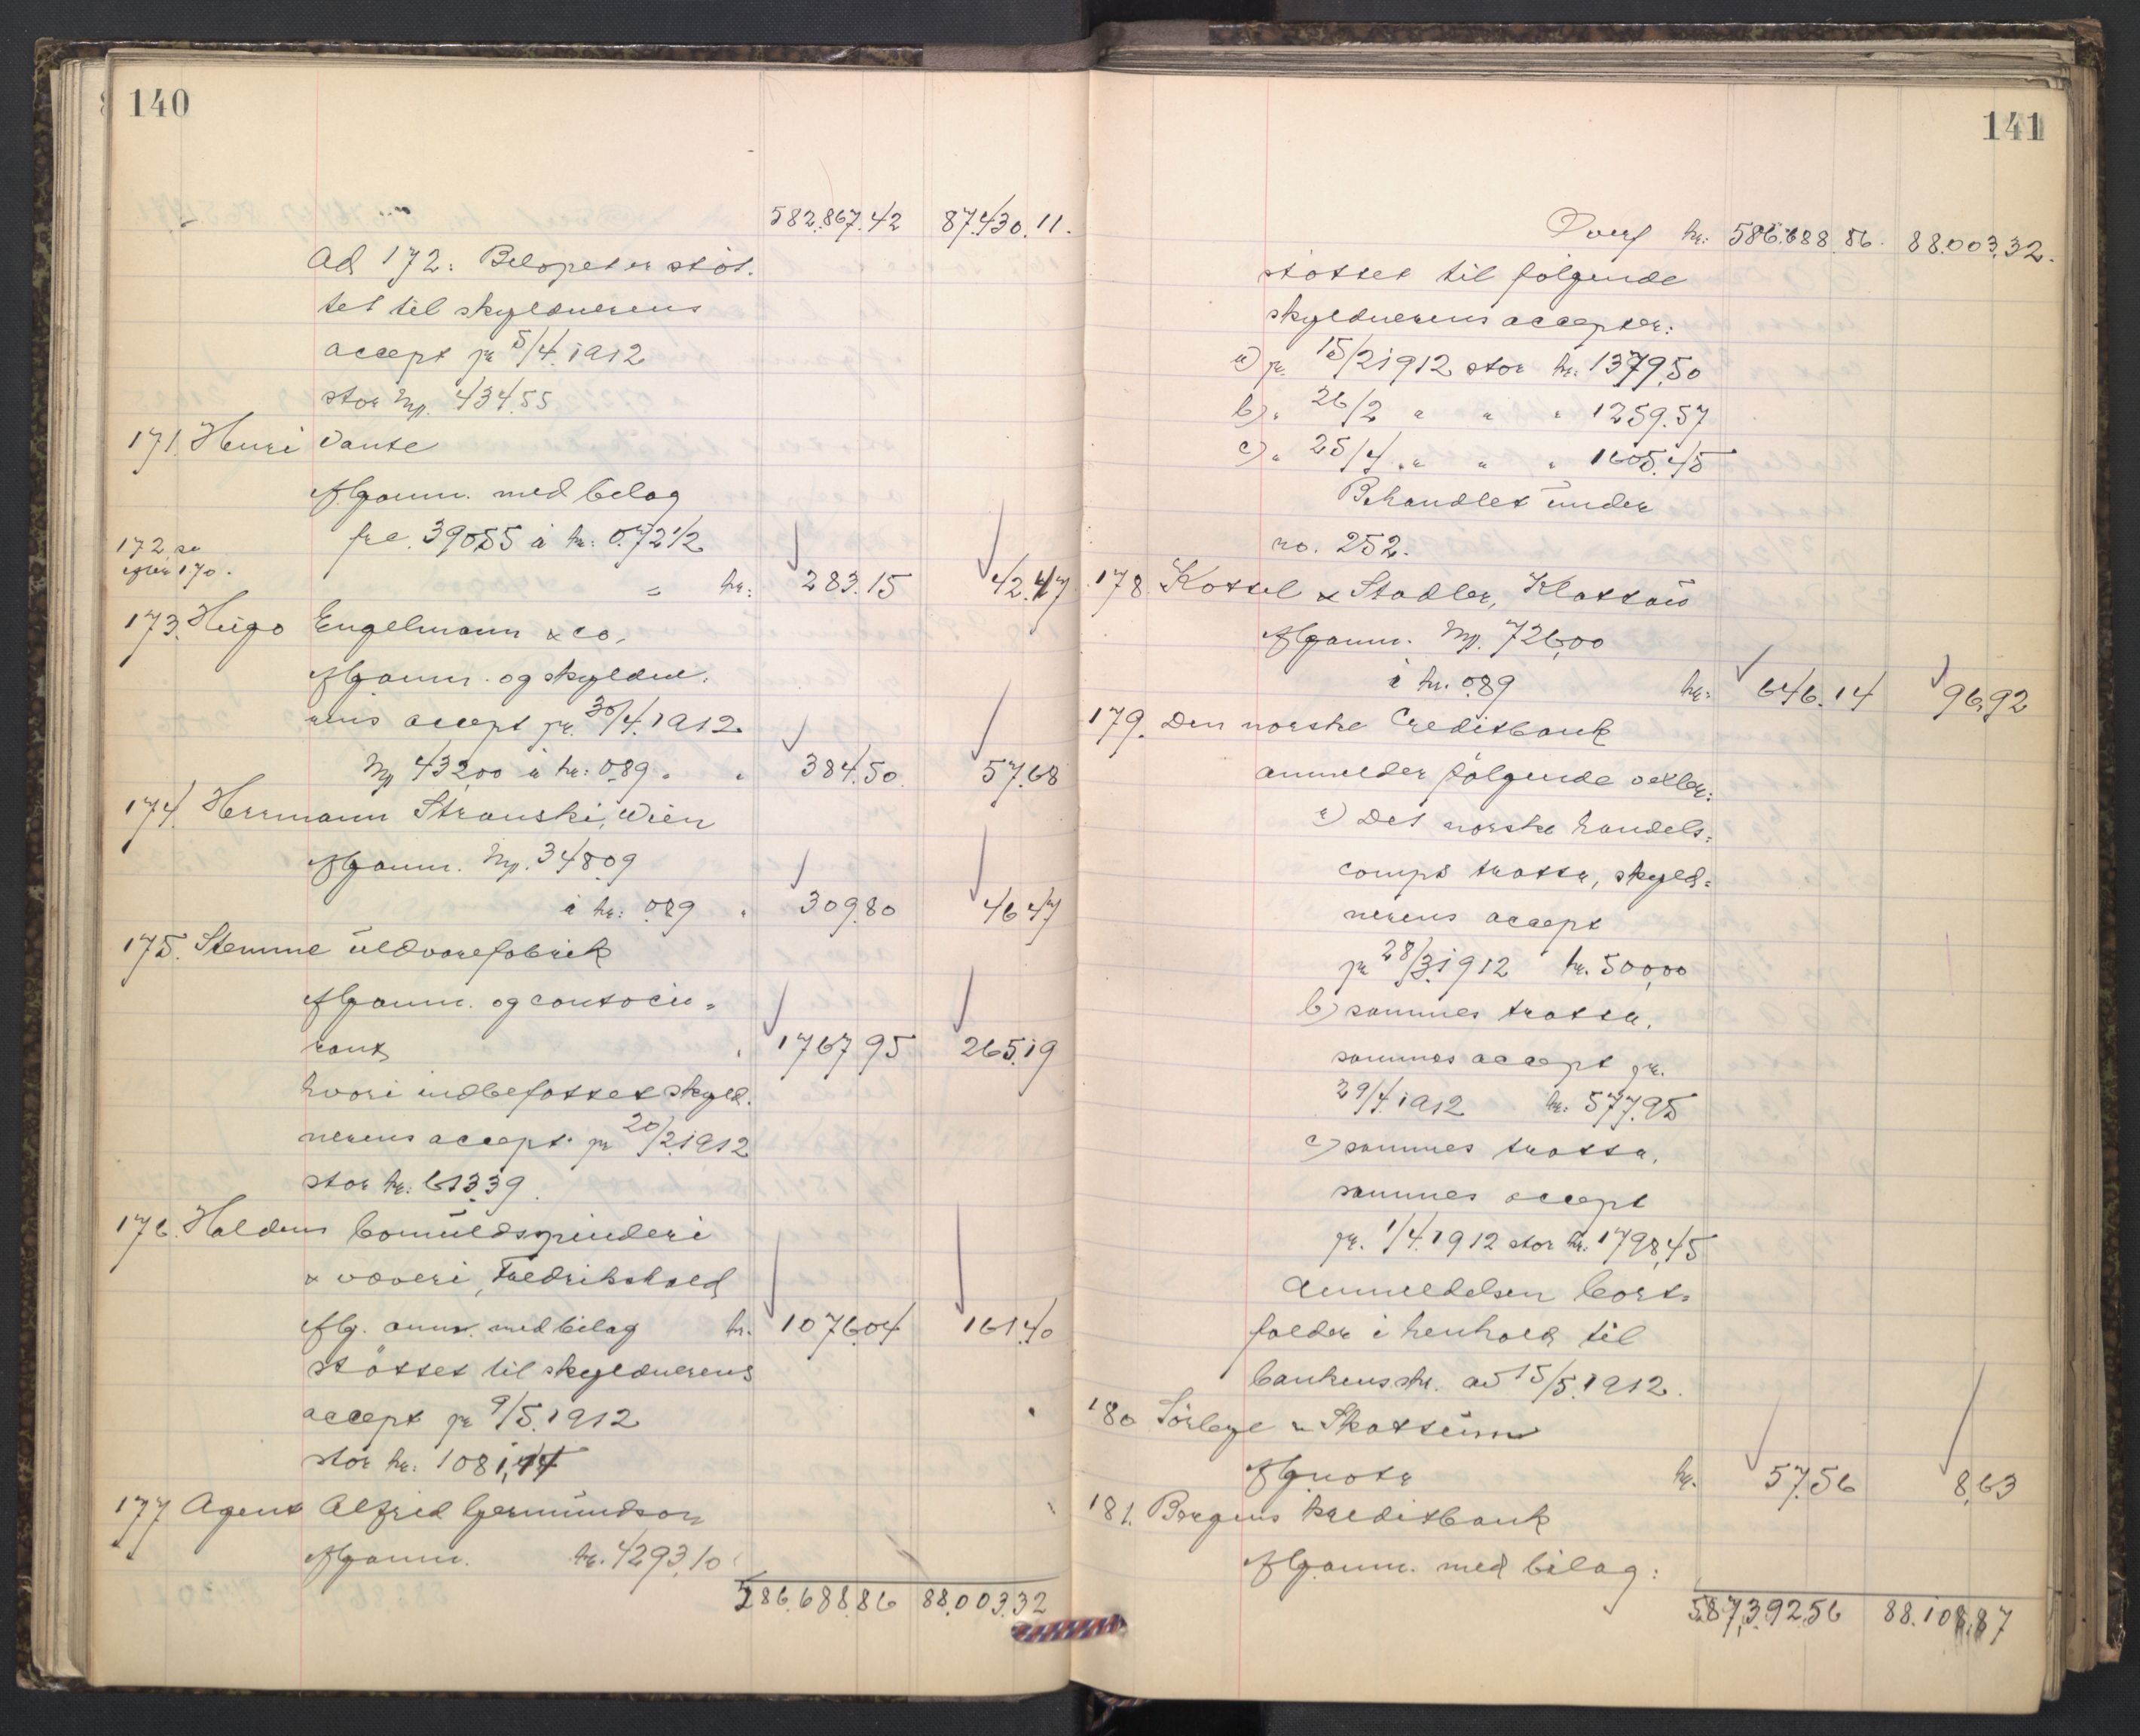 140
582.867.42 87.430.11.
Ad 172: Beløpet er støt-
tet til skyldnerens
accept pr 5/4.1912
stor Mp. 434.55
171. Henri Dante
Afg.anm. med bilag
frc. 390.55 à kr: 0.72 1/2
172 se
efter 170.
" kr: 283.15 42.47
173. Hugo Engelmann & Co.
Afg.anm. og skyldne-
rens accept pr. 30/4.1912.
Mp 432,00 à kr: 0.89 " " 384.50 57.68
174. Herrmann Stranski, Wien
Afg.anm. Mp. 348.09
à kr: 0.89 " 309.80 46.47
175. Stemme uldvarefabrik
Afg.anm. og contocu-
rant " 1767.95 265.19
hvori indbefattet skyld-
nerens accept pr 20/2.1912
stor kr. 613.39.
176. Haldens bomuldspinderi
& væveri, Fredrikshald
Afg. anm. med bilag kr. 1076.04 161.40
støttet til skyldnerens
accept pr 9/5.1912
stor kr. 1081,44
177 Agent Alfred Gjermundson
Afg.anm. kr. 4293,10
586.688.86 88.003.32
141
Overf kr: 586.688.86. 88.003,32.
støttet til følgende
skyldnerens accepter:
a) pr. 15/2 1912 stor kr. 1379,50
b) " 26/2 " " " 1259.57
c) " 25/4 " " " 1605.45
Behandlet under
no. 252.
178. Kottel & Stadler, Klattau
Afg.anm. Mp. 726,00
à kr. 0.89 kr: 646.14 96,92
179. Den norske Creditbank
anmelder følgende vexler:
a) Det norske handels-
comps tratta, skyld-
nerens accept
pr 28/3.1912 kr. 500,00
b) sammes tratta,
sammes accept pr.
29/4.1912 kr: 577.95
c) sammes tratta,
sammes accept
pr. 1/4.1912 stor kr. 1798,45
Anmeldelsen bort-
falder i henhold til
bankens skr. av 15/5.1912.
180 Sørbye & Skattum
Afg.nota kr. 57.56 8,63
181. Bergens kreditbank
Afg.anm. med bilag:
587,392.56 88.108,87